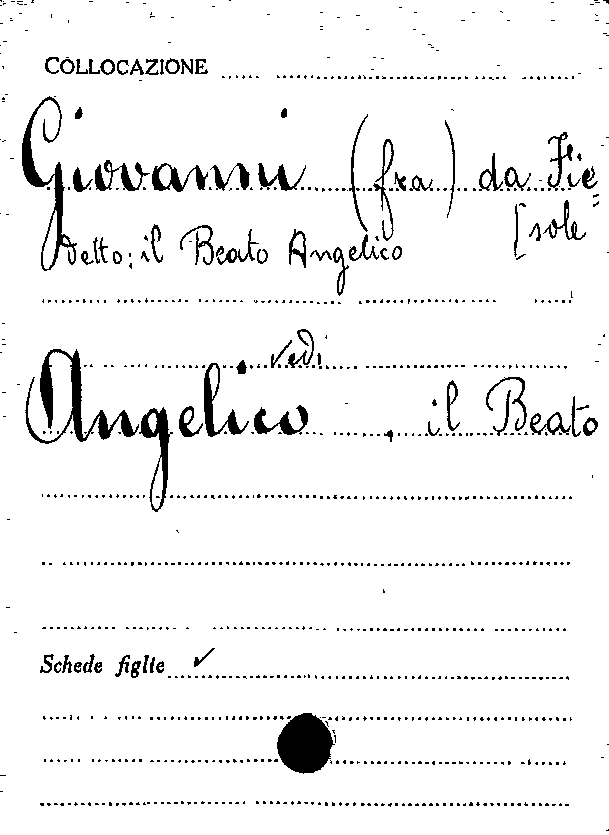 COLLOCAZIONE
Giovanni (fra) da Fie=
[sole
detto: il Beato Angelico
vedi
Angelico, il Beato
Schede figlie ✓